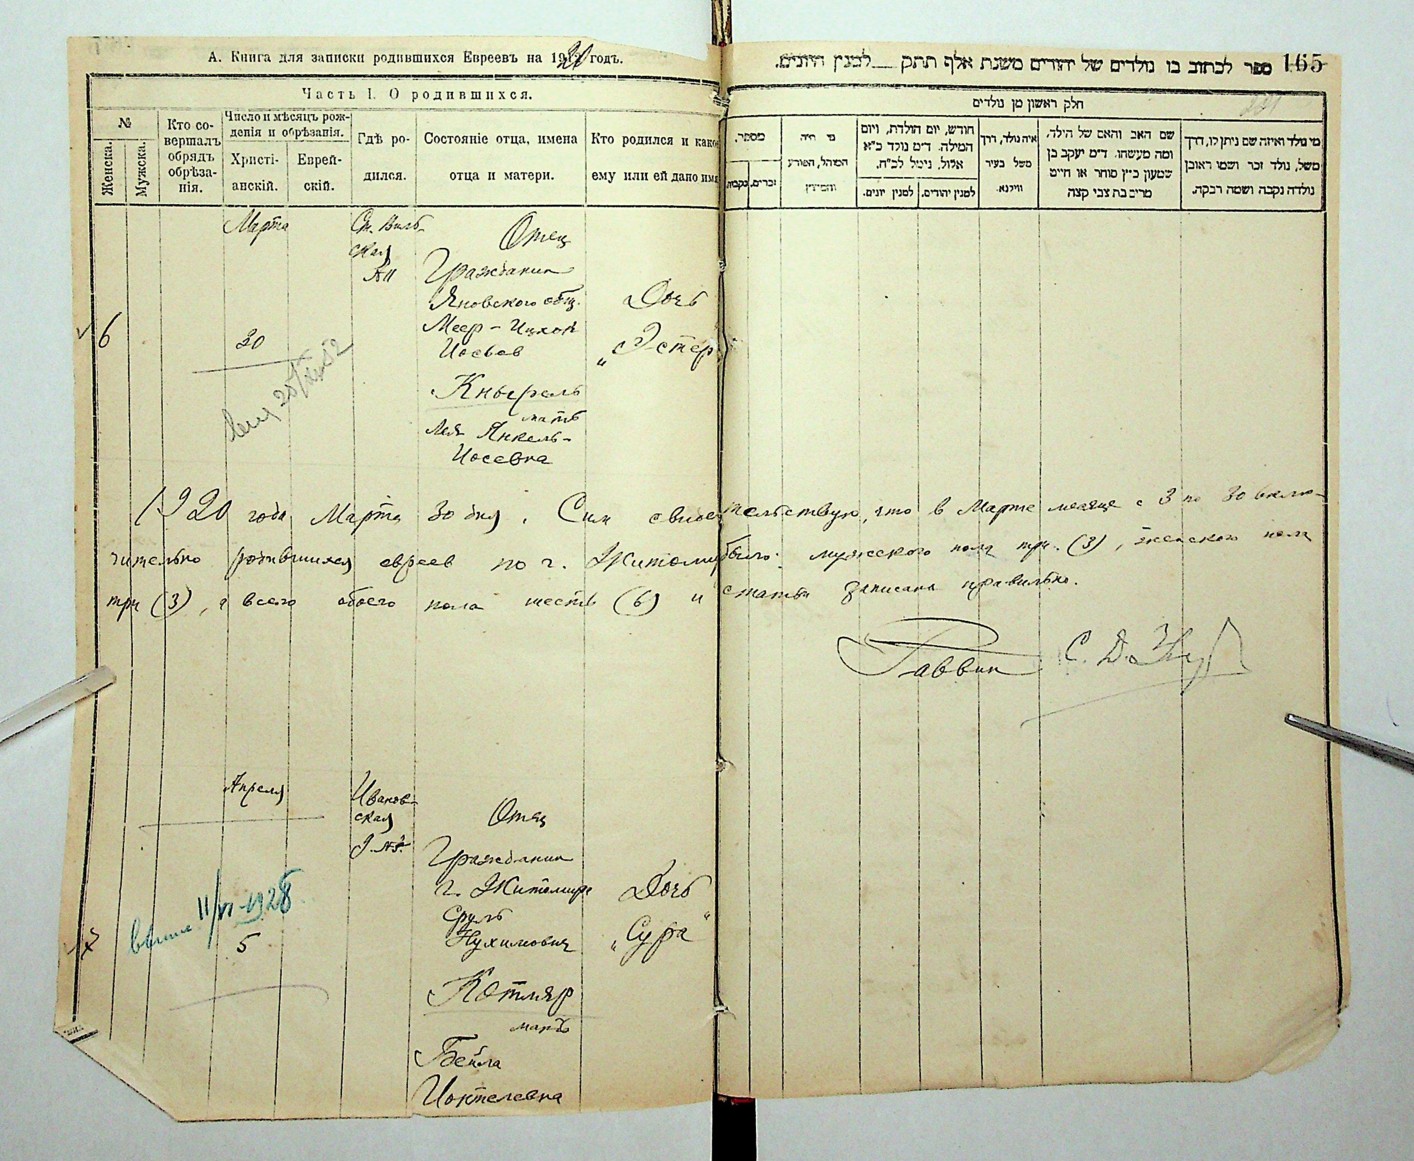 А. Книга для записки родившихся Евреевъ на 1920 годъ.
Часть I. О родившихся.
№
Женска.
Мужска.
Кто со-
вершалъ
обрядъ
обрѣза-
нія.
Число и мѣсяцъ рож-
денія и обрѣзанія.
Христі-
анскій.
Еврей-
скій.
Гдѣ ро-
дился.
Состояніе отца, имена
отца и матери.
Кто родился и како
ему или ей дано имя
165
ספר לכתוב בו נולדים של יהודים משנת אלף תתק לממנין היונים.
חלק ראשון מן נולדים
מספר.
זכרים.
נקבות.
מי היה
המוהל, הפורע
והמוצץ
חודש, יום הולדת, ויום
המילה. ד״מ נולד כ״א
אלול, ניטל לכ״ח.
למנין יהודים.
למנין יונים.
איה נולד, דרך
משל בעיר
ווילנא.
שם האב והאם של הילד,
ומה מעשהו. ד״מ יעקב בן
שמעון כ״ץ סוחר או חייט
מרים בת צבי קצה
מי נולד ואיזה שם ניתן לו, דרך
משל, נולד זכר ושמו ראובן
נולדה נקבה ושמה רבקה.
Марта
Ст. Виль-
ская
6
30
Отец
Гражданин
Яновского общ.
Меер-Ицхок
Иосьев
Кнырель
мать
Лея Янкель-
Иосевна
Дочь
„Эстер
1920 года Марта 30 дня. Сим свидетельствую, что в Марте месяце с 3 по 30 вклю-
чительно родившихся евреев по г. Житомир было: мужского пола три (3), женского пола
три (3), а всего обоего пола шесть (6) и статьи записаны правильно.
Раввин С. Д.
Апреля
Иванов-
ская
7
выпис. 11/VI-1928
5
Отец
Гражданин
г. Житомира
Сруль
Нухимович
Котляр
мать
Бейла
Иоктелевна
Дочь
„Сура"